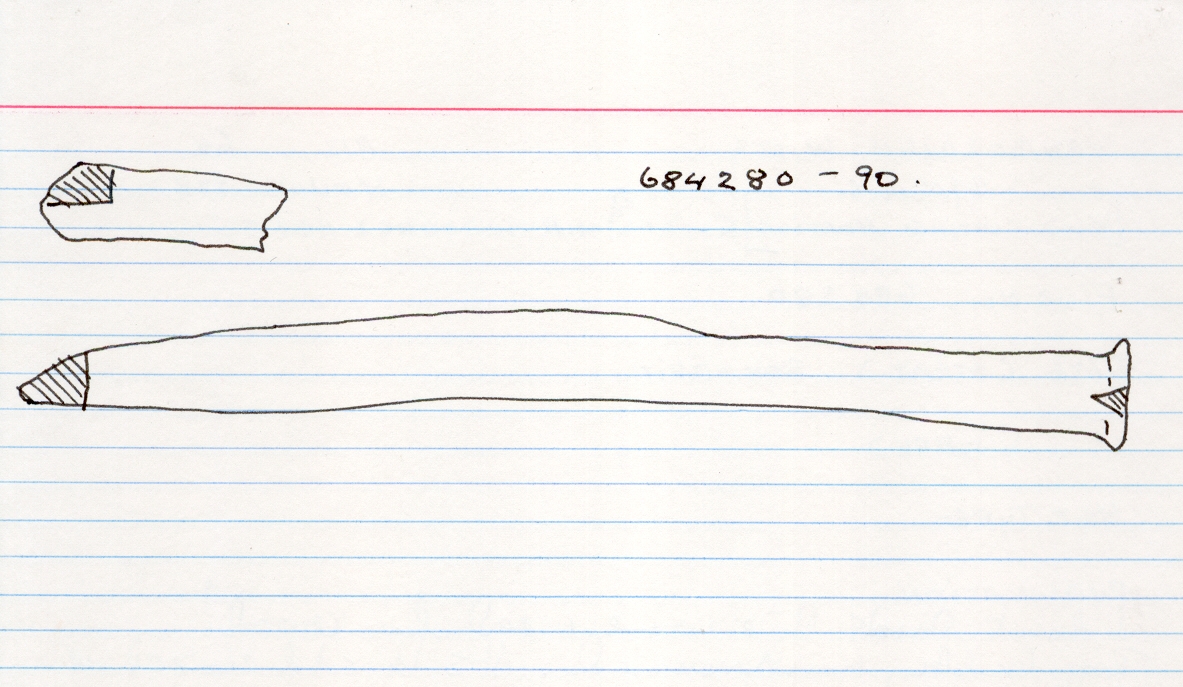 684280 - 90.